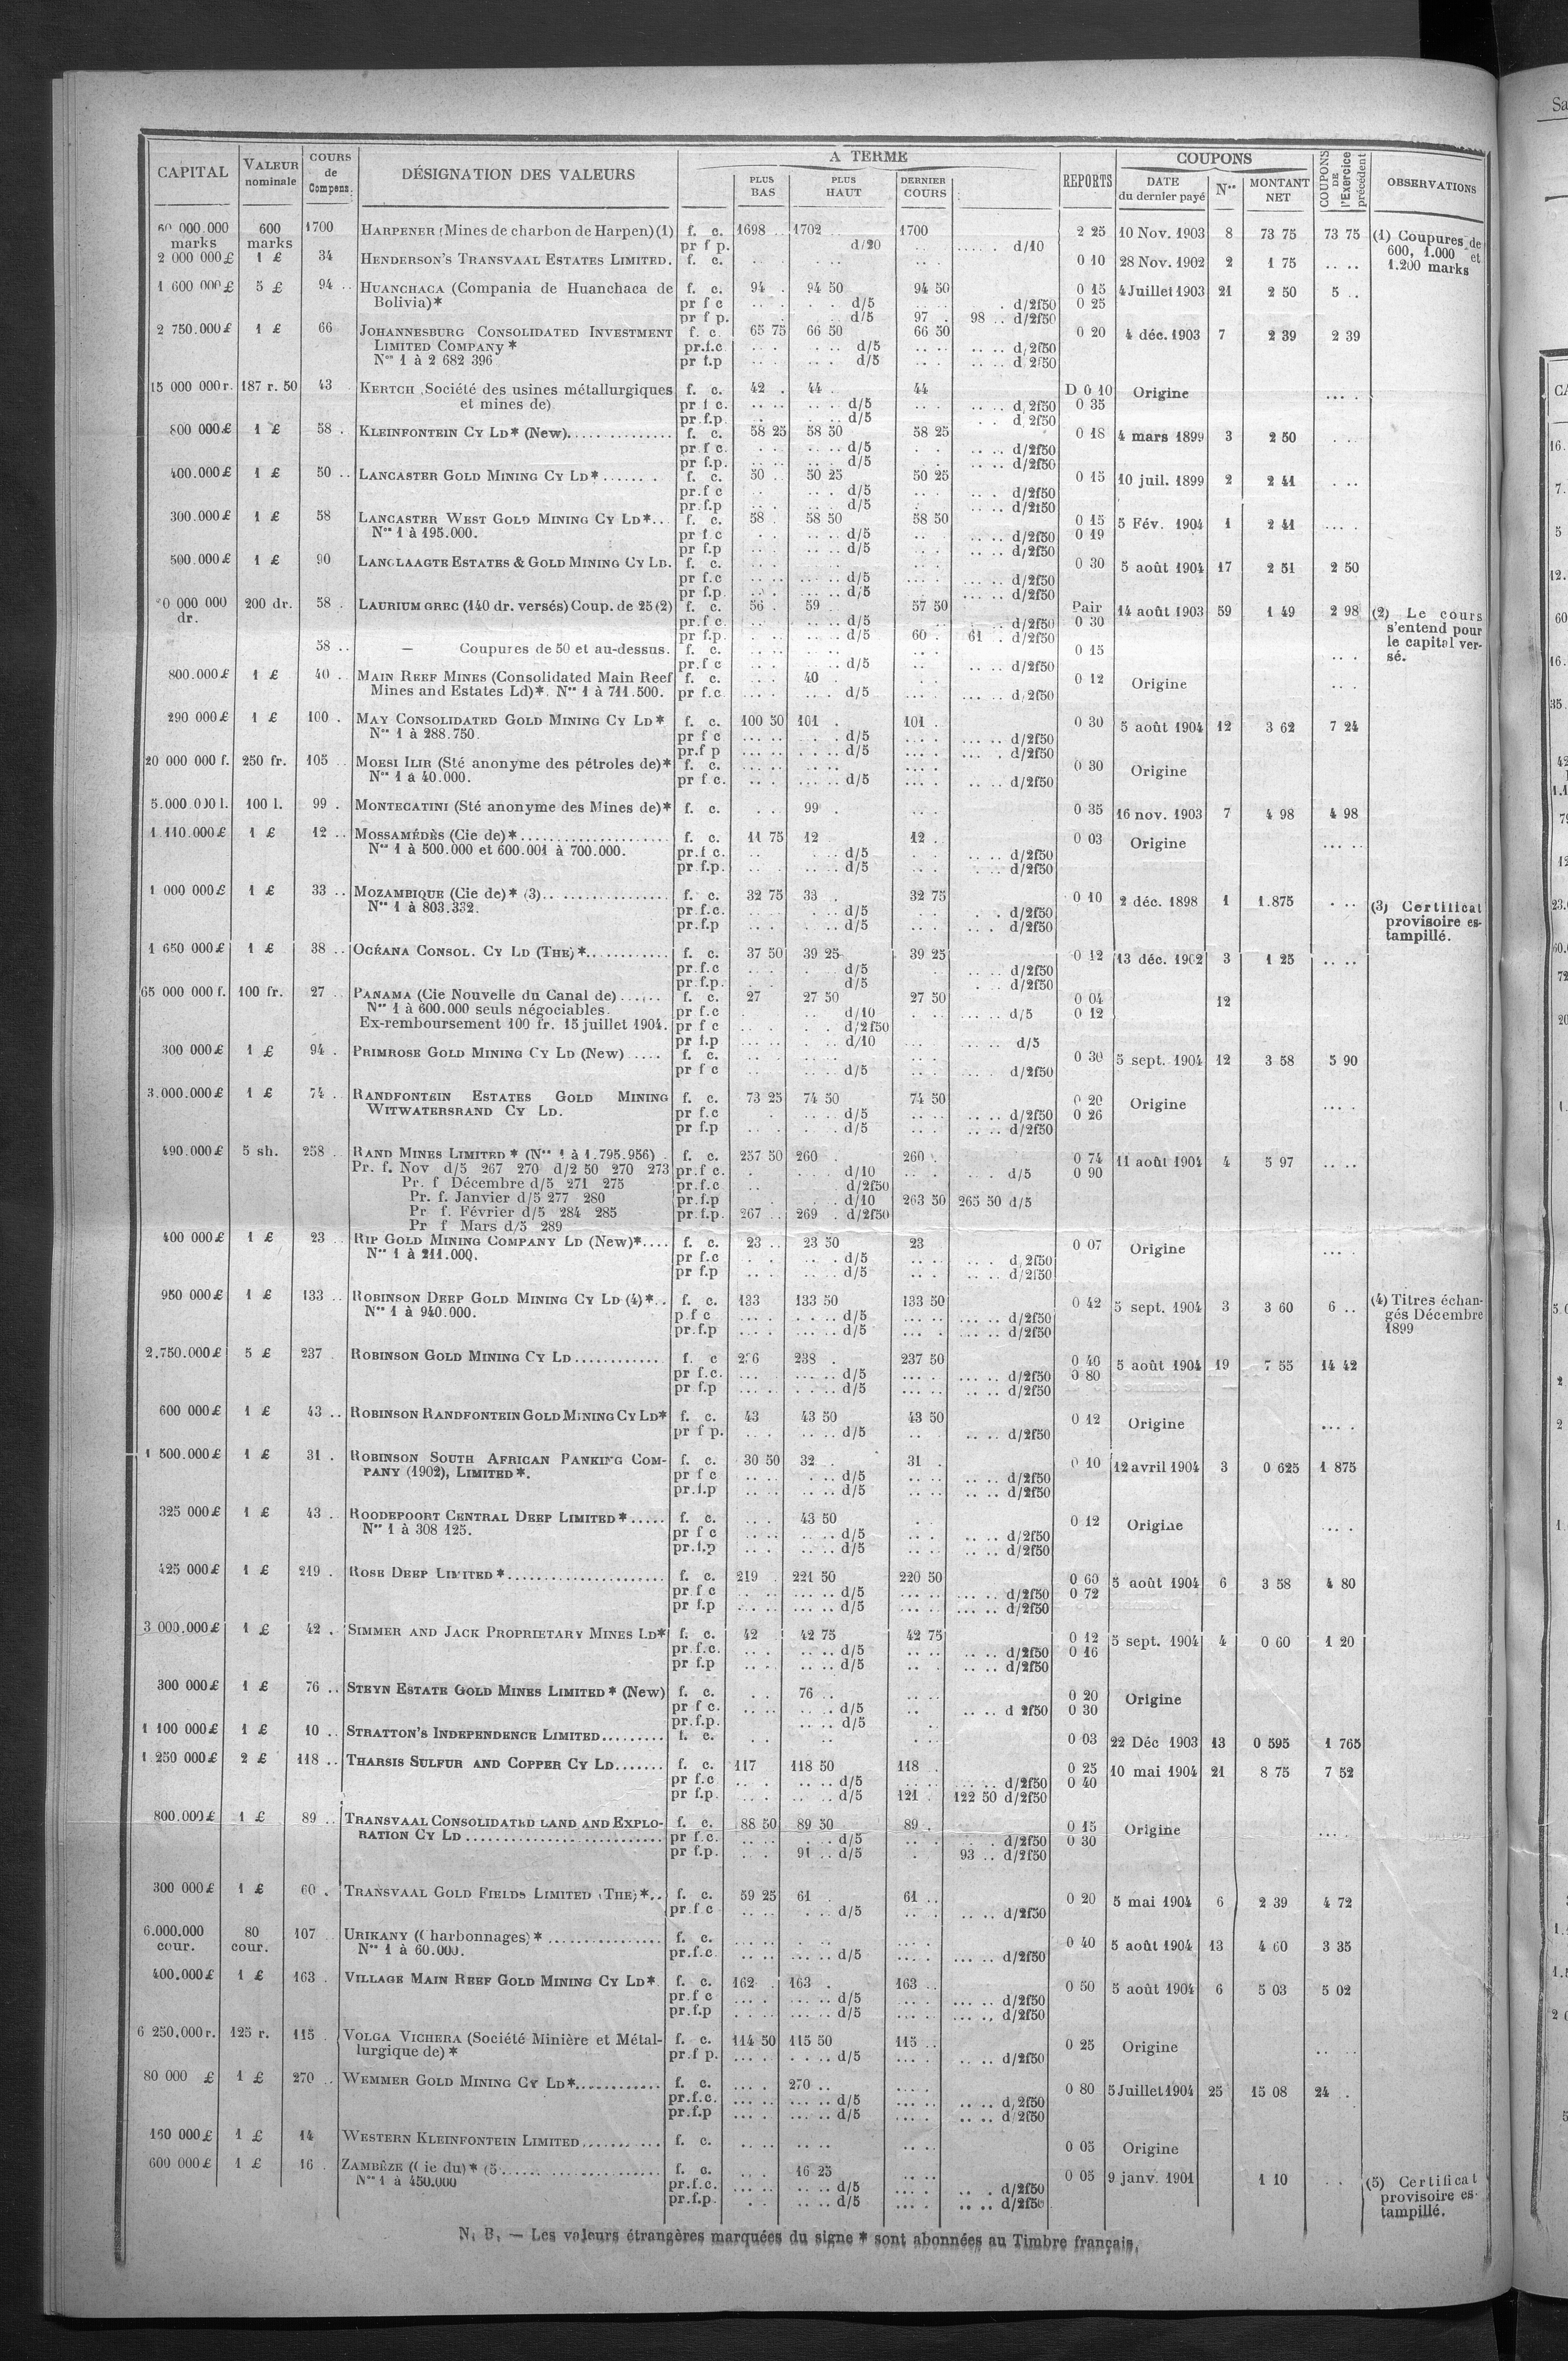 CAPITAL | VALEUR nominale | COURS de Compens. | DÉSIGNATION DES VALEURS | A TERME | PLUS BAS | PLUS HAUT | DERNIER COURS | REPORTS | COUPONS | DATE du dernier payé | Nos | MONTANT NET | COUPONS DE l'Exercice précédent | OBSERVATIONS
60 000.000 marks | 600 marks | 1700 | HARPENER (Mines de charbon de Harpen)(1) | f. c. | 1698 .. | 1702 | 1700 | 2 25 | 10 Nov. 1903 | 8 | 73 75 | 73 75 | (1) Coupures de 600, 1.000 et 1.200 marks
pr f p. | d/20 | d/10
2 000 000£ | 1 £ | 34 | HENDERSON'S TRANSVAAL ESTATES LIMITED. | f. c. | 0 10 | 28 Nov. 1902 | 2 | 1 75
1 600 000£ | 5 £ | 94 .. | HUANCHACA (Compania de Huanchaca de Bolivia)* | f. c. | 94 . | 94 50 | 94 50 | 0 15 | 4 Juillet 1903 | 21 | 2 50 | 5 ..
pr f c | d/5 | d/2f50 | 0 25
pr f p. | d/5 | 97 . | 98 .. d/2f50
2 750.000£ | 1 £ | 66 | JOHANNESBURG CONSOLIDATED INVESTMENT | f. c. | 65 75 | 66 50 | 66 50 | 0 20 | 4 déc. 1903 | 7 | 2 39 | 2 39
LIMITED COMPANY * | pr.f.c | d/5 | d/2f50
Nos 1 à 2 682 396 | pr f.p | d/5 | d/2f50
15 000 000 r. | 187 r. 50 | 43 | KERTCH (Société des usines métallurgiques | f. c. | 42 . | 44 . | 44 | D 0 10 | Origine
et mines de) | pr f c. | d/5 | d/2f50 | 0 35
pr f.p. | d/5 | d/2f50
800 000£ | 1 £ | 58 . | KLEINFONTEIN CY LD* (New) | f. c. | 58 25 | 58 50 | 58 25 | 0 18 | 4 mars 1899 | 3 | 2 50
pr f c. | d/5 | d/2f50
pr f.p. | d/5 | d/2f50
400.000£ | 1 £ | 50 .. | LANCASTER GOLD MINING CY LD* | f. c. | 50 .. | 50 25 | 50 25 | 0 15 | 10 juil. 1899 | 2 | 2 41
pr.f c | d/5 | d/2f50
pr.f.p | d/5 | d/2f50
300.000£ | 1 £ | 58 | LANCASTER WEST GOLD MINING CY LD* | f. c. | 58 . | 58 50 | 58 50 | 0 15 | 5 Fév. 1904 | 1 | 2 41
Nos 1 à 195.000. | pr f c | d/5 | d/2f50 | 0 19
pr f.p | d/5 | d/2f50
500.000£ | 1 £ | 90 | LANGLAAGTE ESTATES & GOLD MINING CY LD. | f. c. | 0 30 | 5 août 1904 | 17 | 2 51 | 2 50
pr f.c | d/5 | d/2f50
pr f.p. | d/5 | d/2f50
0 000 000 dr. | 200 dr. | 58 . | LAURIUM GREC (140 dr. versés) Coup. de 25 (2) | f. c. | 56 . | 59 . | 57 50 | Pair | 14 août 1903 | 59 | 1 49 | 2 98 | (2) Le cours s'entend pour le capital versé.
pr.f c. | d/5 | d/2f50 | 0 30
pr f.p. | d/5 | 60 . | 61 . d/2f50
58 .. | — Coupures de 50 et au-dessus. | f. c. | 0 15
pr.f c | d/5 | d/2f50
800.000£ | 1 £ | 40 .. | MAIN REEF MINES (Consolidated Main Reef | f. c. | 40 | 0 12 | Origine
Mines and Estates Ld)*. Nos 1 à 711.500. | pr f.c | d/5 | d/2f50
290 000£ | 1 £ | 100 . | MAY CONSOLIDATED GOLD MINING CY LD* | f. c. | 100 50 | 101 . | 101 . | 0 30 | 5 août 1904 | 12 | 3 62 | 7 24
Nos 1 à 288.750. | pr f c | d/5 | d/2f50
pr.f p | d/5 | d/2f50
20 000 000 f. | 250 fr. | 105 .. | MOESI ILIR (Sté anonyme des pétroles de)* | f. c. | 0 30 | Origine
Nos 1 à 40.000. | pr f c. | d/5 | d/2f50
5.000 000 l. | 100 l. | 99 . | MONTECATINI (Sté anonyme des Mines de)* | f. c. | 99 . | 0 35 | 16 nov. 1903 | 7 | 4 98 | 4 98
1.110.000£ | 1 £ | 12 .. | MOSSAMÉDÈS (Cie de)* | f. c. | 11 75 | 12 | 12 . | 0 03 | Origine
Nos 1 à 500.000 et 600.001 à 700.000. | pr.f c. | d/5 | d/2f50
pr f.p. | d/5 | d/2f50
1 000 000£ | 1 £ | 33 .. | MOZAMBIQUE (Cie de)* (3) | f. c. | 32 75 | 33 . | 32 75 | 0 10 | 2 déc. 1898 | 1 | 1.875 | (3) Certificat provisoire estampillé.
Nos 1 à 803.332. | pr f.c. | d/5 | d/2f50
pr f.p | d/5 | d/2f50
1 650 000£ | 1 £ | 38 .. | OCÉANA CONSOL. CY LD (THE)* | f. c. | 37 50 | 39 25 | 39 25 | 0 12 | 13 déc. 1902 | 3 | 1 25
pr.f.c | d/5 | d/2f50
pr.f.p. | d/5 | d/2f50
65 000 000 f. | 100 fr. | 27 .. | PANAMA (Cie Nouvelle du Canal de) | f. c. | 27 | 27 50 | 27 50 | 0 04 | 12
Nos 1 à 600.000 seuls négociables. | pr f.c | d/10 | d/5 | 0 12
Ex-remboursement 100 fr. 15 juillet 1904. | pr f c | d/2f50
pr f.p | d/10 | d/5
300 000£ | 1 £ | 94 . | PRIMROSE GOLD MINING CY LD (New) | f. c. | 0 30 | 5 sept. 1904 | 12 | 3 58 | 5 90
pr f c | d/5 | d/2f50
3.000.000£ | 1 £ | 74 .. | RANDFONTEIN ESTATES GOLD MINING | f. c. | 73 25 | 74 50 | 74 50 | 0 20 | Origine
WITWATERSRAND CY LD. | pr f.c | d/5 | d/2f50 | 0 26
pr f.p | d/5 | d/2f50
490.000£ | 5 sh. | 258 | RAND MINES LIMITED * (Nos 1 à 1.795.956) | f. c. | 257 50 | 260 . | 260 . | 0 74 | 11 août 1904 | 4 | 5 97
Pr. f. Nov d/5 267 270 d/2 50 270 273 | pr.f c. | d/10 | d/5 | 0 90
Pr. f Décembre d/5 271 275 | pr.f.c. | d/2f50
Pr. f. Janvier d/5 277 280 | pr.f.p | d/10 | 263 50 | 265 50 d/5
Pr f. Février d/5 284 285 | pr f.p. | 267 .. | 269 . d/2f50
Pr f Mars d/5 289
400 000£ | 1 £ | 23 .. | RIP GOLD MINING COMPANY LD (New)* | f. c. | 23 .. | 23 50 | 23 | 0 07 | Origine
Nos 1 à 211.000. | pr f.c | d/5 | d/2f50
pr f.p | d/5 | d/2f50
950 000£ | 1 £ | 133 .. | ROBINSON DEEP GOLD MINING CY LD (4)* | f. c. | 133 | 133 50 | 133 50 | 0 42 | 5 sept. 1904 | 3 | 3 60 | 6 .. | (4) Titres échangés Décembre 1899
Nos 1 à 940.000. | p f c | d/5 | d/2f50
pr.f.p | d/5 | d/2f50
2.750.000£ | 5 £ | 237 | ROBINSON GOLD MINING CY LD | f. c | 236 | 238 . | 237 50 | 0 40 | 5 août 1904 | 19 | 7 55 | 14 42
pr f.c. | d/5 | d/2f50 | 0 80
pr f.p | d/5 | d/2f50
600 000£ | 1 £ | 43 .. | ROBINSON RANDFONTEIN GOLD MINING CY LD* | f. c. | 43 | 43 50 | 43 50 | 0 12 | Origine
pr f p. | d/5 | d/2f50
1 500.000£ | 1 £ | 31 . | ROBINSON SOUTH AFRICAN BANKING COM- | f. c. | 30 50 | 32 .. | 31 . | 0 10 | 12 avril 1904 | 3 | 0 625 | 1 875
PANY (1902), LIMITED*. | pr f c | d/5 | d/2f50
pr.f.p | d/5 | d/2f50
325 000£ | 1 £ | 43 .. | ROODEPOORT CENTRAL DEEP LIMITED* | f. c. | 43 50 | 0 12 | Origine
Nos 1 à 308 125. | pr f c | d/5 | d/2f50
pr.f.p | d/5 | d/2f50
425 000£ | 1 £ | 219 . | ROSE DEEP LIMITED * | f. c. | 219 . | 221 50 | 220 50 | 0 60 | 5 août 1904 | 6 | 3 58 | 4 80
pr f c | d/5 | d/2f50 | 0 72
pr f.p | d/5 | d/2f50
3 000.000£ | 1 £ | 42 . | SIMMER AND JACK PROPRIETARY MINES LD* | f. c. | 42 | 42 75 | 42 75 | 0 12 | 5 sept. 1904 | 4 | 0 60 | 1 20
pr.f.c. | d/5 | d/2f50 | 0 16
pr f.p | d/5 | d/2f50
300 000£ | 1 £ | 76 .. | STEYN ESTATE GOLD MINES LIMITED * (New) | f. c. | 76 .. | 0 20 | Origine
pr f c. | d/5 | d 2f50 | 0 30
pr.f.p. | d/5
1 100 000£ | 1 £ | 10 .. | STRATTON'S INDEPENDENCE LIMITED | f. c. | 0 03 | 22 Déc 1903 | 13 | 0 595 | 1 765
1 250 000£ | 2 £ | 118 .. | THARSIS SULFUR AND COPPER CY LD | f. c. | 117 | 118 50 | 118 . | 0 25 | 10 mai 1904 | 21 | 8 75 | 7 52
pr f.c | d/5 | d/2f50 | 0 40
pr f.p. | d/5 | 121 . | 122 50 d/2f50
800.000£ | 1 £ | 89 .. | TRANSVAAL CONSOLIDATED LAND AND EXPLO- | f. c. | 88 50 | 89 50 | 89 . | 0 15 | Origine
RATION CY LD | pr f.c. | d/5 | d/2f50 | 0 30
pr f.p. | 91 .. d/5 | 93 .. d/2f50
300 000£ | 1 £ | 60 . | TRANSVAAL GOLD FIELDS LIMITED (THE)* | f. c. | 59 25 | 61 . | 61 .. | 0 20 | 5 mai 1904 | 6 | 2 39 | 4 72
pr.f c | d/5 | d/2f50
6.000.000 cour. | 80 cour. | 107 | URIKANY (Charbonnages)* | f. c. | 0 40 | 5 août 1904 | 13 | 4 60 | 3 35
Nos 1 à 60.000. | pr.f.c. | d/5 | d/2f50
400.000£ | 1 £ | 163 . | VILLAGE MAIN REEF GOLD MINING CY LD* | f. c. | 162 . | 163 . | 163 .. | 0 50 | 5 août 1904 | 6 | 5 03 | 5 02
pr.f c | d/5 | d/2f50
pr.f.p | d/5 | d/2f50
6 250.000 r. | 125 r. | 115 . | VOLGA VICHERA (Société Minière et Métal- | f. c. | 114 50 | 115 50 | 115 .. | 0 25 | Origine
lurgique de)* | pr.f p. | d/5 | d/2f50
80 000 £ | 1 £ | 270 .. | WEMMER GOLD MINING CY LD* | f. c. | 270 .. | 0 80 | 5 Juillet 1904 | 25 | 15 08 | 24 .
pr.f.c. | d/5 | d/2f50
pr.f.p | d/5 | d/2f50
160 000£ | 1 £ | 14 | WESTERN KLEINFONTEIN LIMITED | f. c. | 0 05 | Origine
600 000£ | 1 £ | 16 . | ZAMBÈZE (Cie du)* (5 | f. c. | 16 25 | 0 05 | 9 janv. 1901 | 1 10 | (5) Certificat provisoire estampillé.
Nos 1 à 450.000 | pr.f.c. | d/5 | d/2f50
pr.f.p. | d/5 | d/2f50
N. B. — Les valeurs étrangères marquées du signe * sont abonnées au Timbre français.